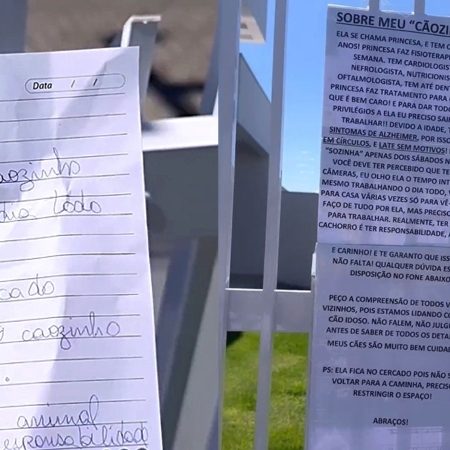 Data / /
caozinho
dia todo
cado
caozinho
animal
responsabilidade
SOBRE MEU "CÃOZI
ELA SE CHAMA PRINCESA, E TEM
ANOS! PRINCESA FAZ FISIOTERAP
SEMANA. TEM CARDIOLOGIS
NEFROLOGISTA, NUTRICIONIS
OFTALMOLOGISTA, TEM ATÉ DENT
PRINCESA FAZ TRATAMENTO PARA
QUE É BEM CARO! E PARA DAR TODO
PRIVILÉGIOS A ELA EU PRECISO SAIR
TRABALHAR!! DEVIDO A IDADE, T
SINTOMAS DE ALZHEIMER, POR ISSO
EM CÍRCULOS, E LATE SEM MOTIVOS!
"SOZINHA" APENAS DOIS SÁBADOS N
VOCÊ DEVE TER PERCEBIDO QUE TE
CÂMERAS, EU OLHO ELA O TEMPO INT
MESMO TRABALHANDO O DIA TODO, V
PARA CASA VÁRIAS VEZES SÓ PARA VÊ-
FAÇO DE TUDO POR ELA, MAS PRECISO
PARA TRABALHAR. REALMENTE, TER
CACHORRO É TER RESPONSABILIDADE,
E CARINHO! E TE GARANTO QUE ISS
NÃO FALTA! QUALQUER DÚVIDA ES
DISPOSIÇÃO NO FONE ABAIXO
PEÇO A COMPREENSÃO DE TODOS V
VIZINHOS, POIS ESTAMOS LIDANDO CO
CÃO IDOSO. NÃO FALEM, NÃO JULGU
ANTES DE SABER DE TODOS OS DETA
MEUS CÃES SÃO MUITO BEM CUIDA
PS: ELA FICA NO CERCADO POIS NÃO S
VOLTAR PARA A CAMINHA, PRECISO
RESTRINGIR O ESPAÇO!
ABRAÇOS!